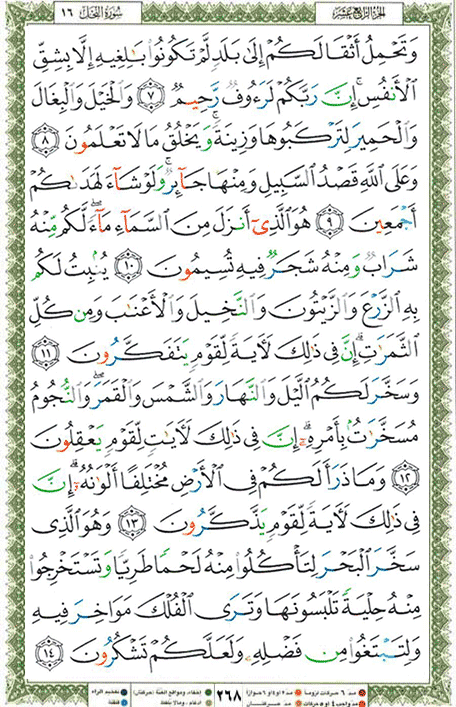 الجزء الرابع عشر
سورة النحل ١٦
وَتَحْمِلُ أَثْقَالَكُمْ إِلَىٰ بَلَدٍ لَّمْ تَكُونُوا۟ بَـٰلِغِيهِ إِلَّا بِشِقِّ
ٱلْأَنفُسِ ۚ إِنَّ رَبَّكُمْ لَرَءُوفٌ رَّحِيمٌ ٧ وَٱلْخَيْلَ وَٱلْبِغَالَ
وَٱلْحَمِيرَ لِتَرْكَبُوهَا وَزِينَةً ۚ وَيَخْلُقُ مَا لَا تَعْلَمُونَ ٨
وَعَلَى ٱللَّهِ قَصْدُ ٱلسَّبِيلِ وَمِنْهَا جَآئِرٌ ۚ وَلَوْ شَآءَ لَهَدَىٰكُمْ
أَجْمَعِينَ ٩ هُوَ ٱلَّذِىٓ أَنزَلَ مِنَ ٱلسَّمَآءِ مَآءً ۖ لَّكُم مِّنْهُ
شَرَابٌ وَمِنْهُ شَجَرٌ فِيهِ تُسِيمُونَ ١٠ يُنۢبِتُ لَكُم
بِهِ ٱلزَّرْعَ وَٱلزَّيْتُونَ وَٱلنَّخِيلَ وَٱلْأَعْنَـٰبَ وَمِن كُلِّ
ٱلثَّمَرَٰتِ ۗ إِنَّ فِى ذَٰلِكَ لَـَٔايَةً لِّقَوْمٍ يَتَفَكَّرُونَ ١١
وَسَخَّرَ لَكُمُ ٱلَّيْلَ وَٱلنَّهَارَ وَٱلشَّمْسَ وَٱلْقَمَرَ ۖ وَٱلنُّجُومُ
مُسَخَّرَٰتٌۢ بِأَمْرِهِۦٓ ۗ إِنَّ فِى ذَٰلِكَ لَـَٔايَـٰتٍ لِّقَوْمٍ يَعْقِلُونَ
١٢ وَمَا ذَرَأَ لَكُمْ فِى ٱلْأَرْضِ مُخْتَلِفًا أَلْوَٰنُهُۥٓ ۗ إِنَّ
فِى ذَٰلِكَ لَـَٔايَةً لِّقَوْمٍ يَذَّكَّرُونَ ١٣ وَهُوَ ٱلَّذِى
سَخَّرَ ٱلْبَحْرَ لِتَأْكُلُوا۟ مِنْهُ لَحْمًا طَرِيًّا وَتَسْتَخْرِجُوا۟
مِنْهُ حِلْيَةً تَلْبَسُونَهَا وَتَرَى ٱلْفُلْكَ مَوَاخِرَ فِيهِ
وَلِتَبْتَغُوا۟ مِن فَضْلِهِۦ وَلَعَلَّكُمْ تَشْكُرُونَ ١٤
مدّ ٦ حركات لزوماً مدّ ٢ او ٤ او ٦ جوازاً
مدّ واجب ٤ او ٥ حركات مدّ حركتان
٢٦٨
إخفاء، ومواقع الغنّة (حركتان) تفخيم الراء
إدغام، وما لا يُلفظ قلقلة